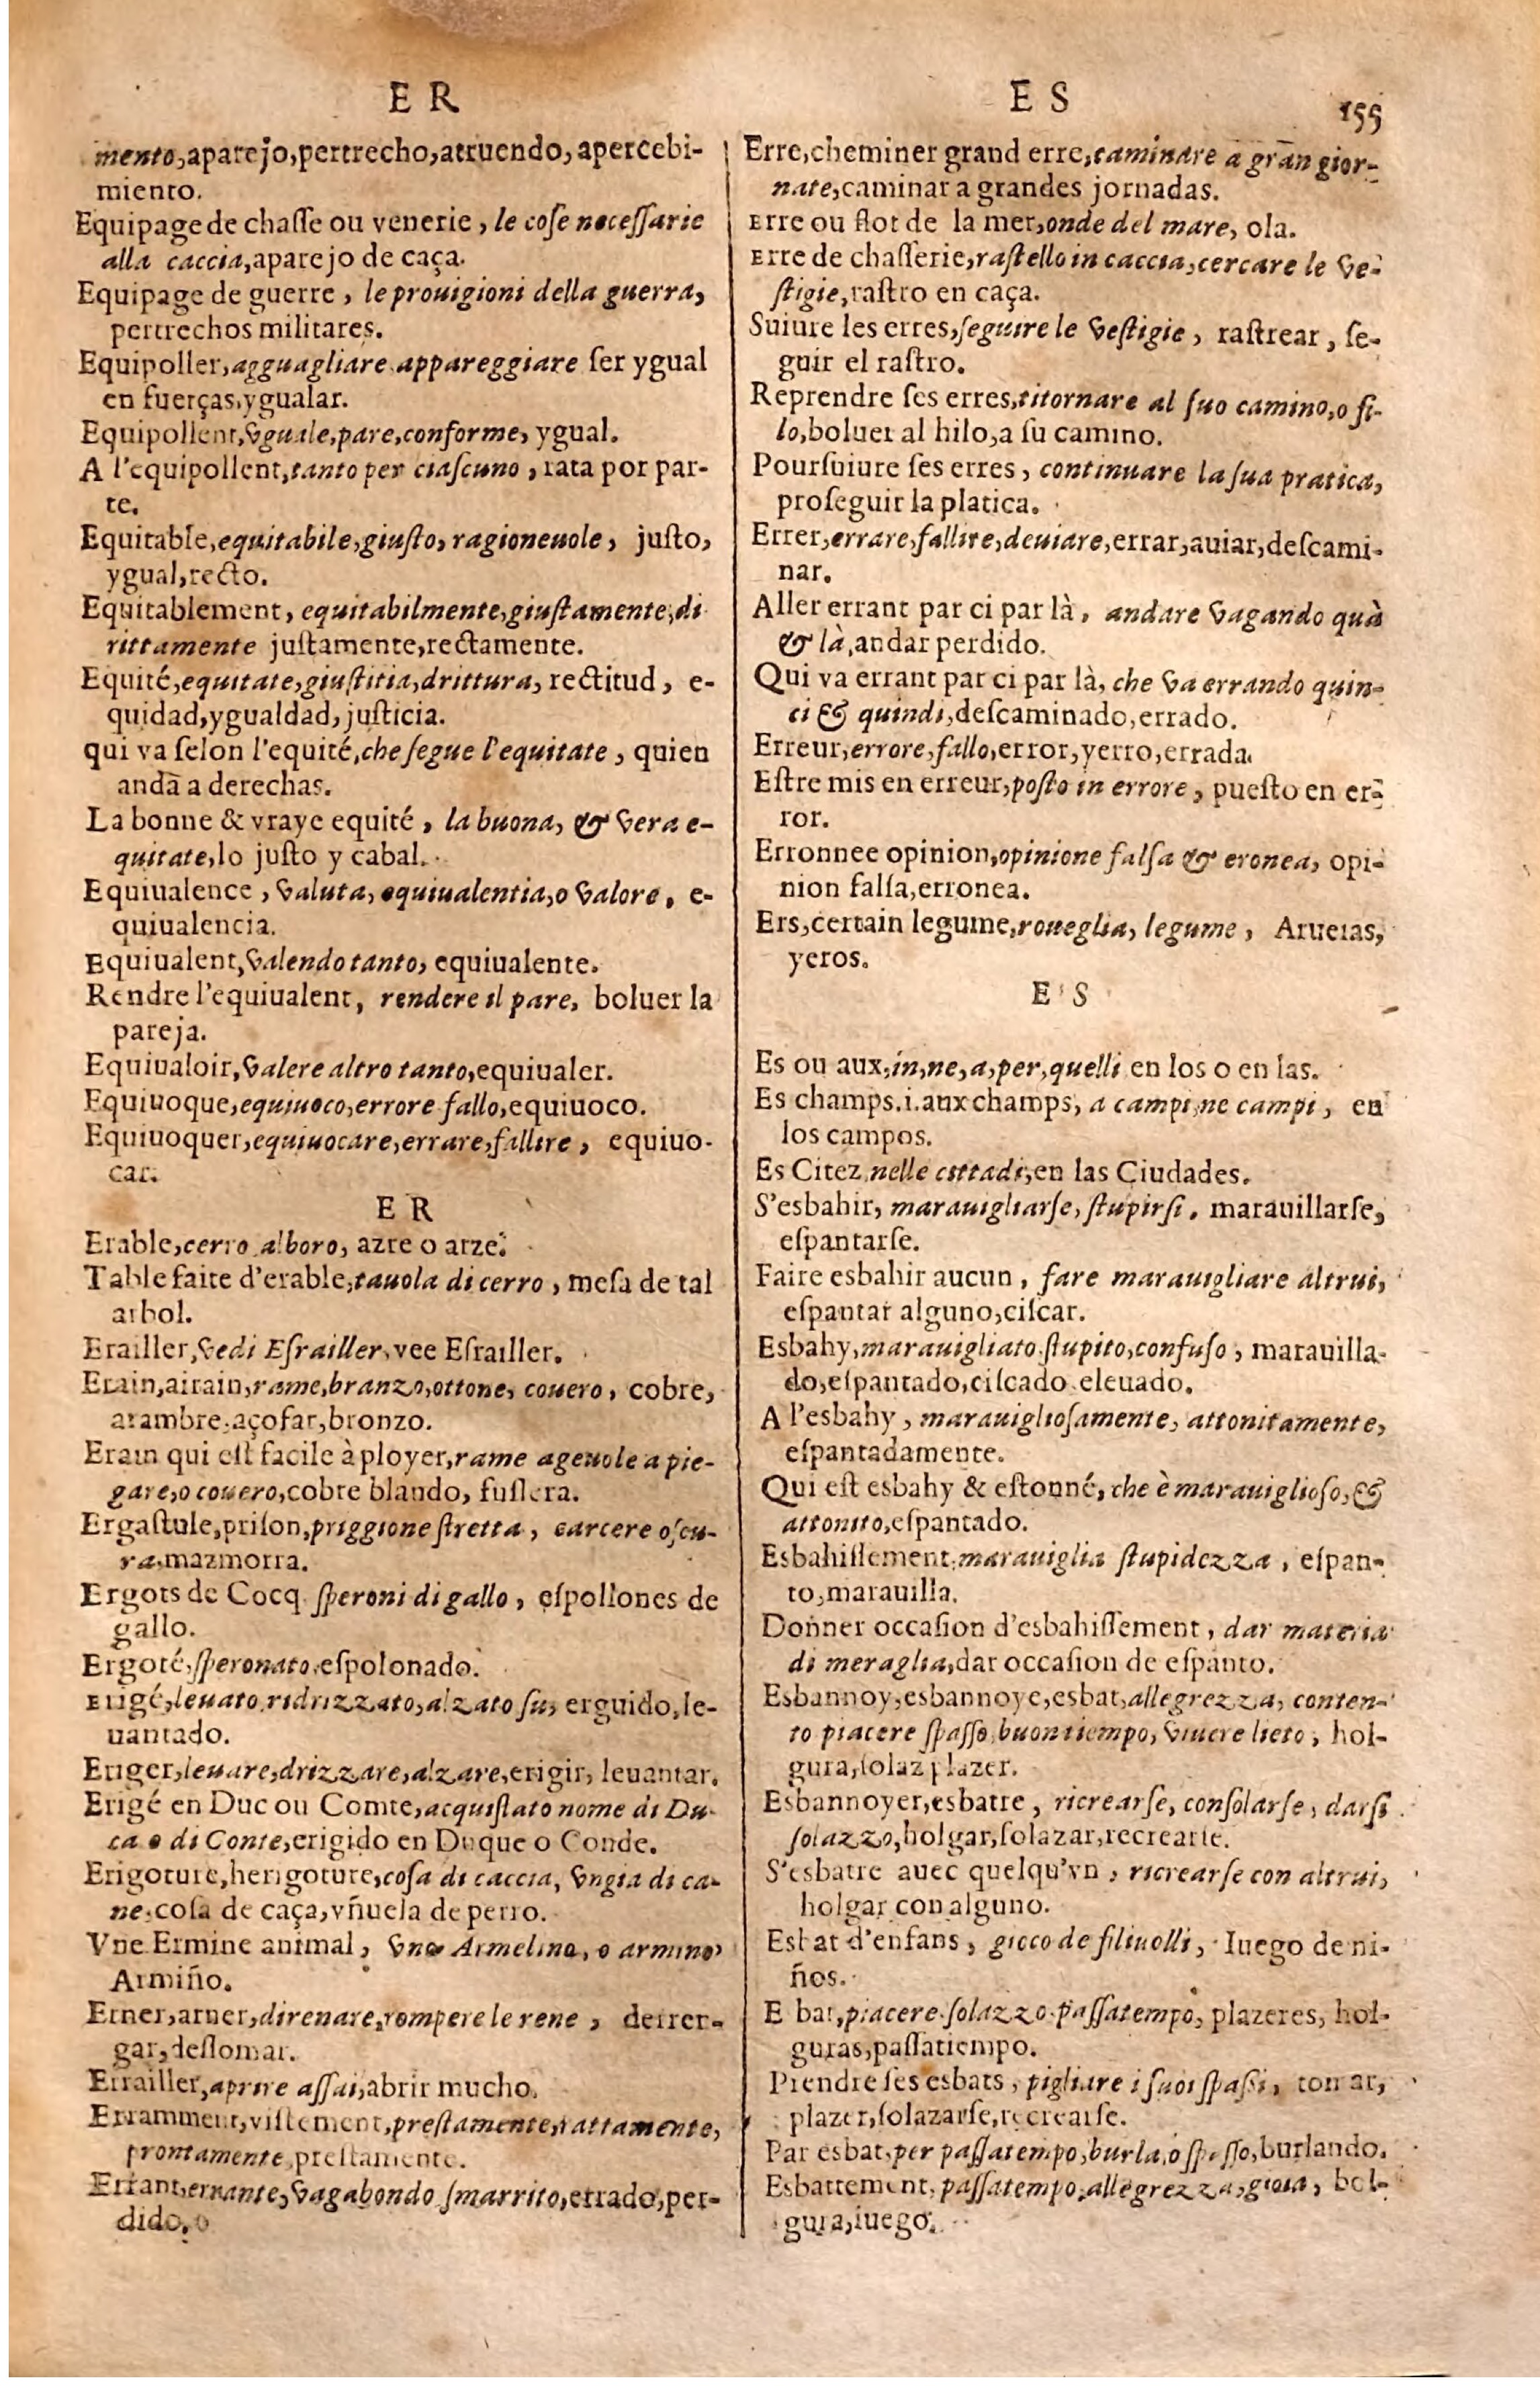 E R
mento, aparejo, pertrecho, atruendo, apercebi-
miento.
Equipage de chaſſe ou venerie, le coſe neceſſarie
alla caccia, aparejo de caça.
Equipage de guerre, le prouigioni della guerra,
pertrechos militares.
Equipoller, agguagliare appareggiare ſer ygual
en fuerças, ygualar.
Equipollent, vguale, pare, conforme, ygual.
A l'equipollent, tanto per ciaſcuno, rata por par-
te.
Equitable, equitabile, giuſto, ragioneuole, juſto,
ygual, recto.
Equitablement, equitabilmente, giuſtamente, di
rittamente juſtamente, rectamente.
Equité, equitate, giuſtitia, drittura, rectitud, e-
quidad, ygualdad, juſticia.
qui va ſelon l'equité, che ſegue l'equitate, quien
andã a derechas.
La bonne & vraye equité, la buona, & vera e-
quitate, lo juſto y cabal.
Equiualence, valuta, equiualentia, o valore, e-
quiualencia.
Equiualent, valendo tanto, equiualente.
Rendre l'equiualent, rendere il pare, boluer la
pareja.
Equiualoir, valere altro tanto, equiualer.
Equiuoque, equiuoco, errore fallo, equiuoco.
Equiuoquer, equiuocare, errare, fallire, equiuo-
car.
E R
Erable, cerro alboro, azre o arze.
Table faite d'erable, tauola di cerro, meſa de tal
arbol.
Erailler, vedi Eſrailler, vee Eſrailler.
Erain, airain, rame, branzo, ottone, couero, cobre,
arambre, açofar, bronzo.
Erain qui eſt facile à ployer, rame ageuole a pie-
gare, o couero, cobre blando, fuſlera.
Ergaſtule, priſon, priggione ſtretta, carcere oſcu-
ra, mazmorra.
Ergots de Cocq ſperoni di gallo, eſpollones de
gallo.
Ergoté, ſperonato, eſpolonado.
Erigé, leuato, ridrizzato, alzato ſu, erguido, le-
uantado.
Eriger, leuare, drizzare, alzare, erigir, leuantar.
Erigé en Duc ou Comte, acquiſtato nome di Du-
ca o di Conte, erigido en Duque o Conde.
Erigoture, herigoture, coſa di caccia, vngia di ca-
ne, coſa de caça, vñuela de perro.
Vne Ermine animal, vna Armelina, o armino
Armiño.
Erner, arner, direnare, rompere le rene, derren-
gar, deſlomar.
Errailler, aprire aſſai, abrir mucho.
Erramment, viſtement, preſtamente, rattamente,
prontamente, preſtamente.
Errant, errante, vagabondo ſmarrito, errado, per-
dido.
E S
155
Erre, cheminer grand erre, caminare a gran gior-
nate, caminar a grandes jornadas.
Erre ou flot de la mer, onde del mare, ola.
Erre de chaſſerie, raſtello in caccia, cercare le ve-
ſtigie, raſtro en caça.
Suiure les erres, ſeguire le veſtigie, raſtrear, ſe-
guir el raſtro.
Reprendre ſes erres, ritornare al ſuo camino, o fi-
lo, boluer al hilo, a ſu camino.
Pourſuiure ſes erres, continuare la ſua pratica,
proſeguir la platica.
Errer, errare, fallire, deuiare, errar, auiar, deſcami-
nar.
Aller errant par ci par là, andare vagando quà
& là, andar perdido.
Qui va errant par ci par là, che va errando quin-
ci & quindi, deſcaminado, errado.
Erreur, errore, fallo, error, yerro, errada.
Eſtre mis en erreur, poſto in errore, pueſto en er-
ror.
Erronnee opinion, opinione falſa & eronea, opi-
nion falſa, erronea.
Ers, certain legume, roueglia, legume, Arueias,
yeros.
E S
Es ou aux, in, ne, a, per, quelli en los o en las.
Es champs. i. aux champs, a campi, ne campi, en
los campos.
Es Citez, nelle cittadi, en las Ciudades.
S'esbahir, marauigliarſe, ſtupirſi, marauillarſe,
eſpantarſe.
Faire esbahir aucun, fare marauigliare altrui,
eſpantar alguno, ciſcar.
Esbahy, marauigliato, ſtupito, confuſo, marauilla-
do, eſpantado, ciſcado eleuado.
A l'esbahy, marauiglioſamente, attonitamente,
eſpantadamente.
Qui eſt esbahy & eſtonné, che è marauiglioſo, &
attonito, eſpantado.
Esbahiſſement, marauiglia ſtupidezza, eſpan-
to, marauilla.
Donner occaſion d'esbahiſſement, dar materia
di meraglia, dar occaſion de eſpanto.
Esbannoy, esbannoye, esbat, allegrezza, conten-
to piacere ſpaſſo, buon tiempo, viuere lieto, hol-
gura, ſolaz plazer.
Esbannoyer, esbatre, ricrearſe, conſolarſe, darſi
ſolazzo, holgar, ſolazar, recrearſe.
S'esbatre auec quelqu'vn, ricrearſe con altrui,
holgar con alguno.
Esbat d'enfans, gioco de filiuolli, Iuego de ni-
ños.
E bat, piacere ſolazzo paſſatempo, plazeres, hol-
guras, paſſatiempo.
Prendre ſes esbats, pigliare i ſuoi ſpaſſi, tomar,
plazer, ſolazarſe, recrearſe.
Par esbat, per paſſatempo, burla, o ſpaſſo, burlando.
Esbattement, paſſatempo, allegrezza, gioia, hol-
gura, iuego.